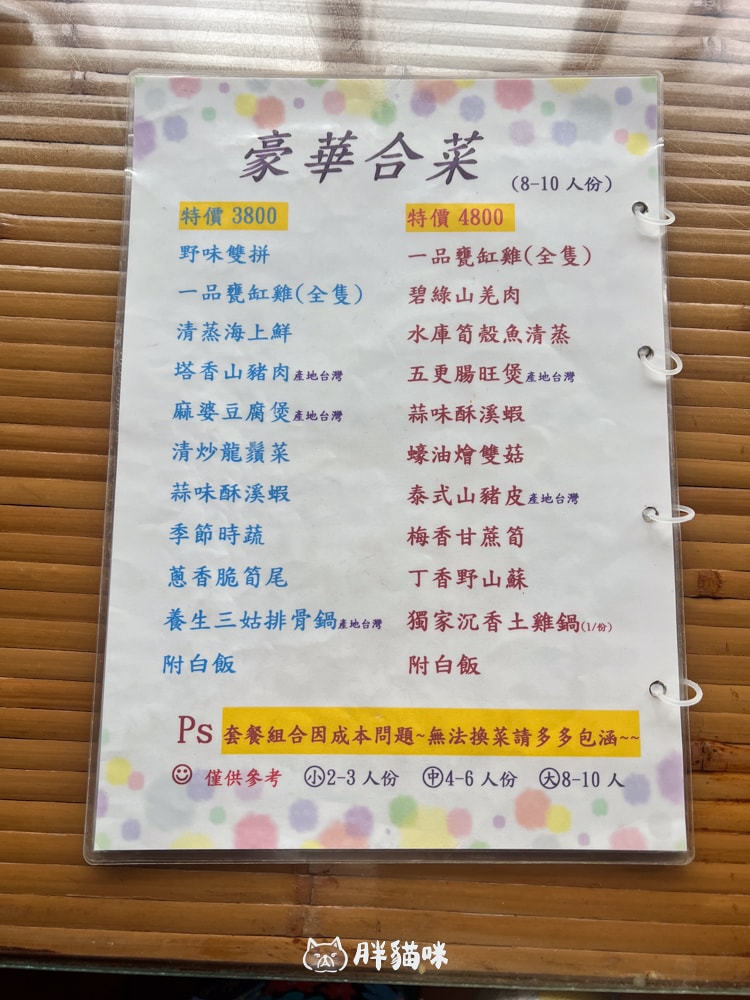 豪華合菜 (8-10 人份)
特價 3800
野味雙拼
一品甕缸雞(全隻)
清蒸海上鮮
塔香山豬肉產地台灣
麻婆豆腐煲產地台灣
清炒龍鬚菜
蒜味酥溪蝦
季節時蔬
蔥香脆筍尾
養生三姑排骨鍋產地台灣
附白飯
特價 4800
一品甕缸雞(全隻)
碧綠山羌肉
水庫筍殼魚清蒸
五更腸旺煲產地台灣
蒜味酥溪蝦
蠔油燴雙菇
泰式山豬皮產地台灣
梅香甘蔗筍
丁香野山蘇
獨家沉香土雞鍋(1/份)
附白飯
Ps 套餐組合因成本問題~無法換菜請多多包涵~~
僅供參考 小2-3 人份 中4-6 人份 大8-10 人
胖貓咪